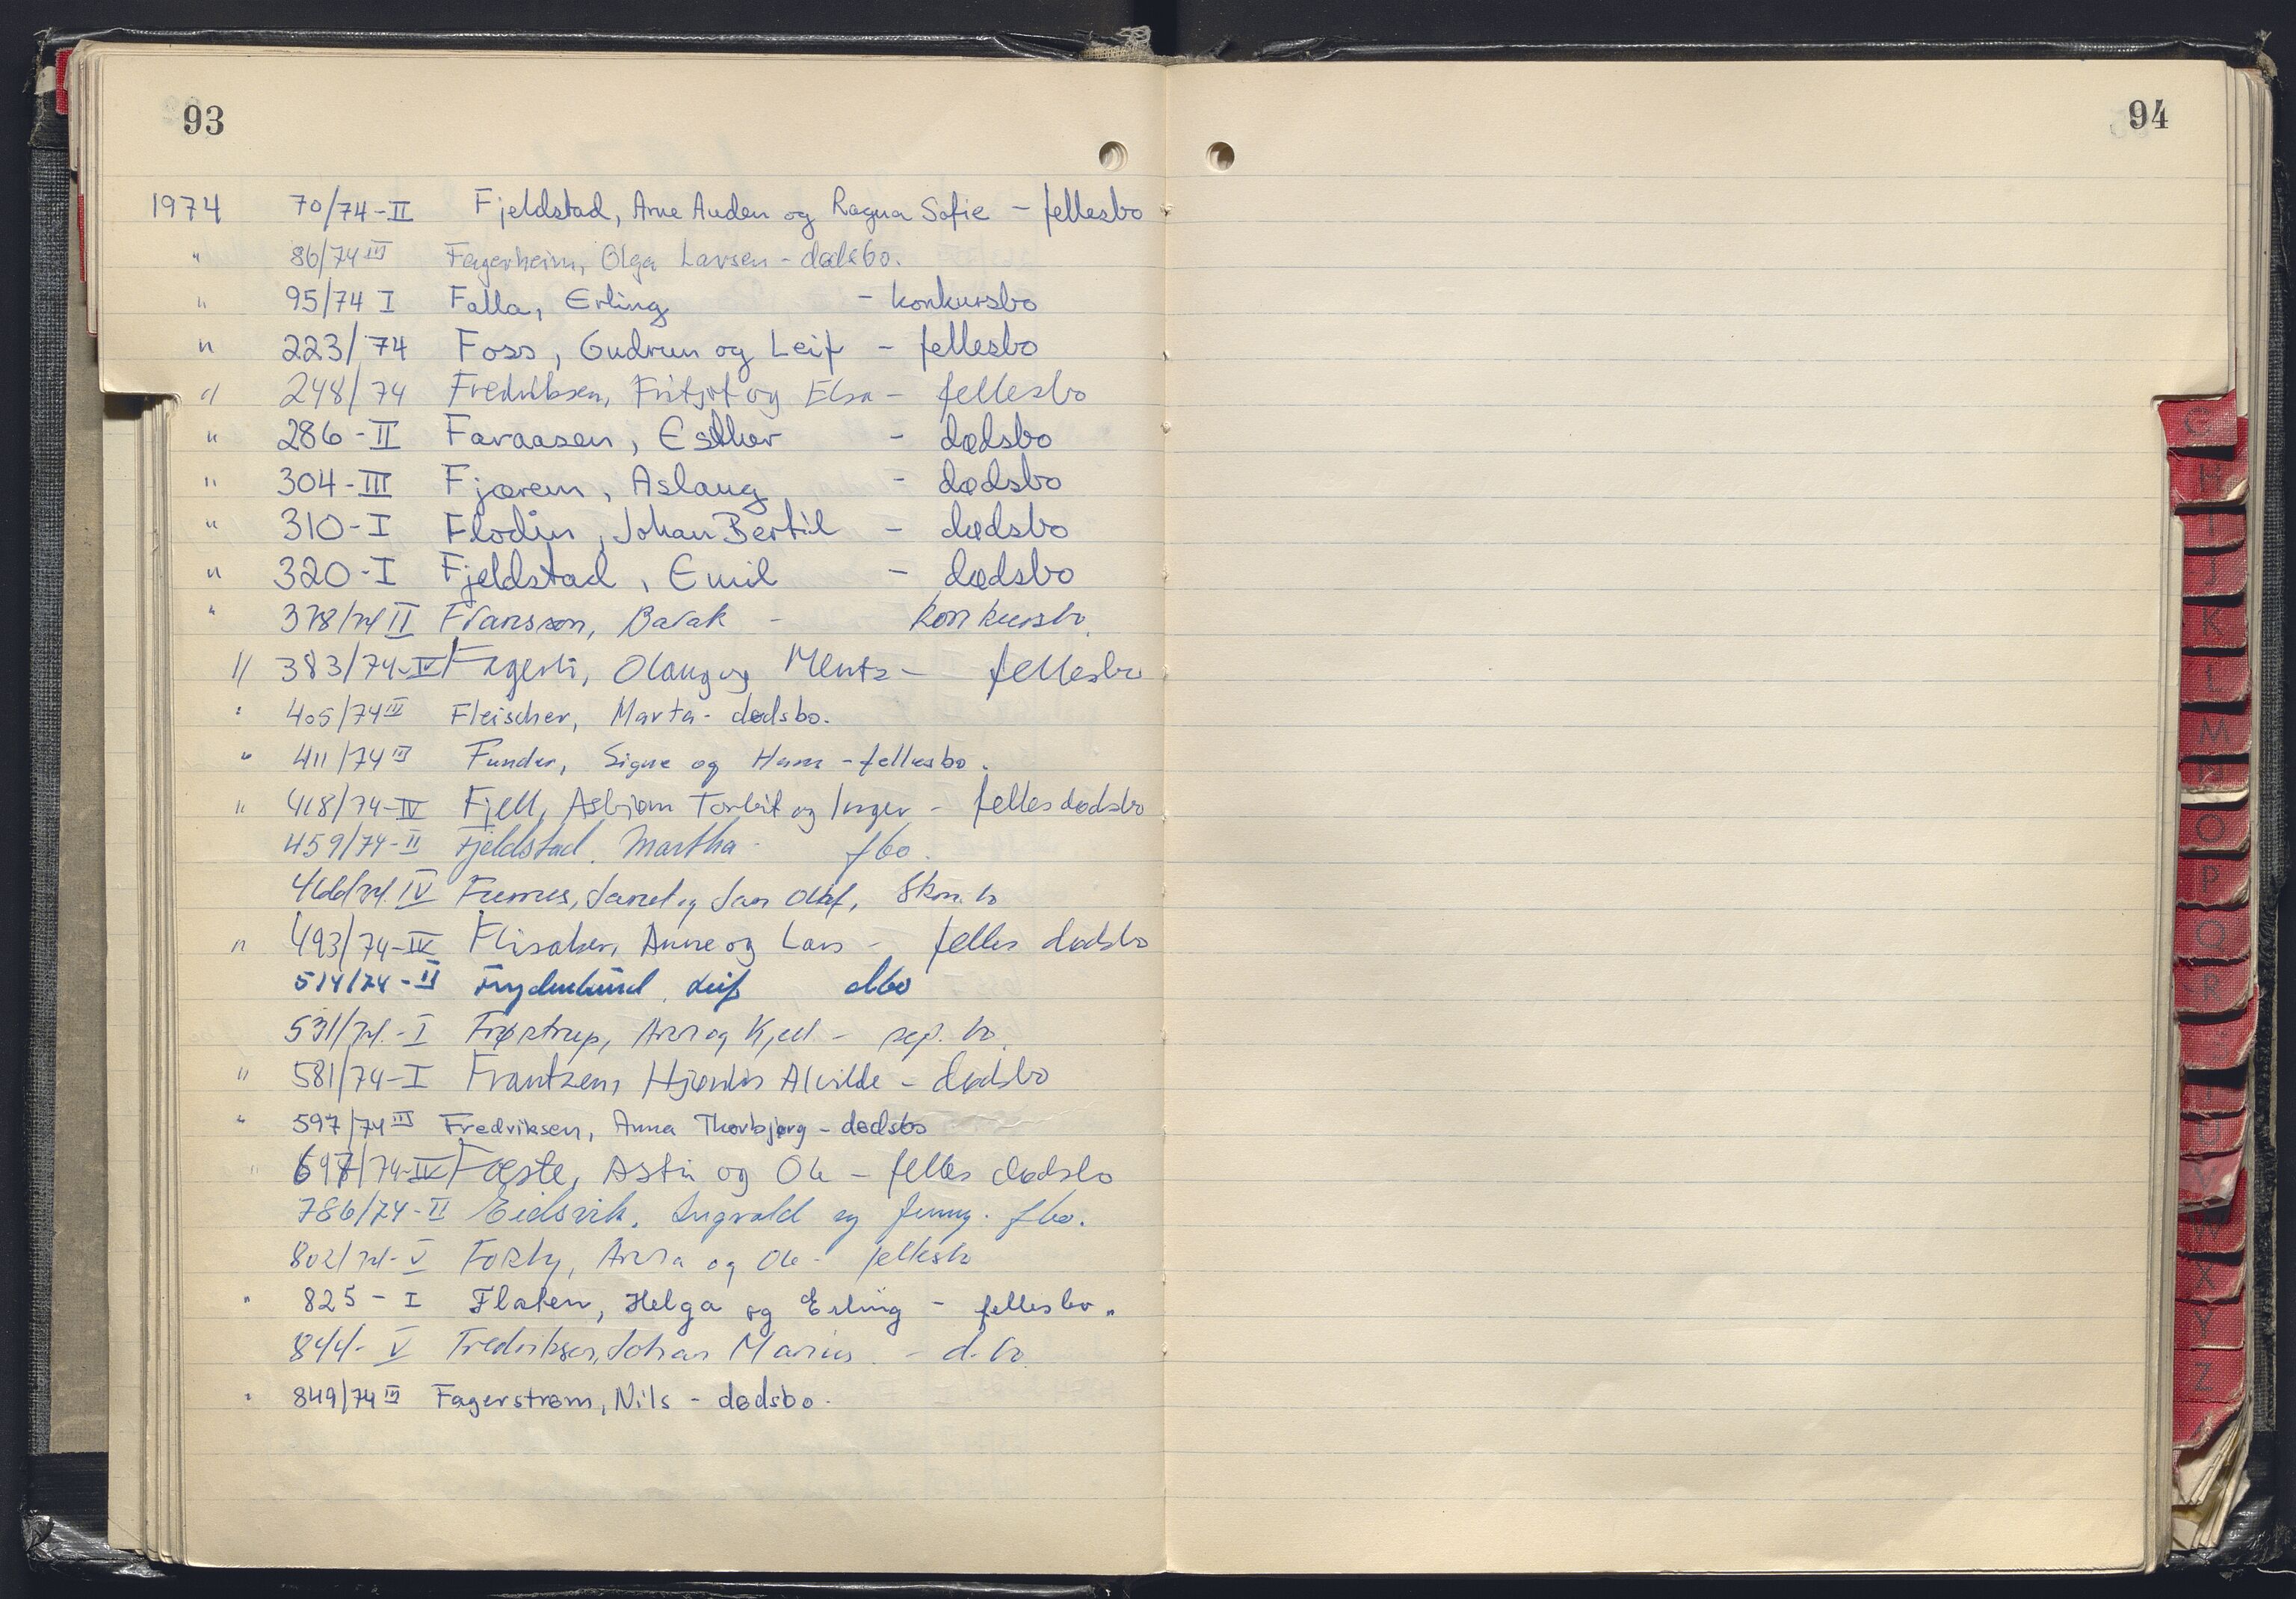 93
94
1974 70/74-II Fjeldstad, Arne Auden og Ragna Sofie - fellesbo
" 86/74 III Fagerheim, Olga Larsen - dødsbo.
" 95/74 I Falla, Erling - konkursbo
" 223/74 Foss, Gudrun og Leif - fellesbo
" 248/74 Fredriksen, Fritjof og Elsa - fellesbo
" 286-II Faraasen, Esther - dødsbo
" 304-III Fjærem, Aslaug - dødsbo
" 310-I Flodin, Johan Bertil - dødsbo
" 320-I Fjeldstad, Emil - dødsbo
" 378/74 II Fransson, Barak - konkursbo.
" 383/74-IV Fagerli, Olaug og Mentz - fellesbo
" 405/74 III Fleischer, Marta - dødsbo.
" 411/74 III Funder, Signe og Hans - fellesbo.
" 418/74-IV Fjell, Asbjørn Torleif og Inger - felles dødsbo
459/74-II Fjeldstad, Martha - fbo.
466/74 IV og Jan Olaf, Skm. bo
" 493/74-IV Flisaker, Anne og Lars - felles dødsbo
514/74-II Frydenlund, Leif dbo
531/74-I Frøstrup, Ann og Kjell - sep. bo.
" 581/74-I Frantzen, Hjørdis Alvilde - dødsbo
" 597/74 III Fredriksen, Anna Thorbjørg - dødsbo
" 697/74-IV Fæste, Astri og Ole - felles dødsbo
786/74-II Eidsvik, Ingvald og Jenny. fbo.
802/74-V Forby, Anna og Ole - fellesbo
" 825-I Flaten, Helga og Erling - fellesbo.
844-V Fredriksen, Johan Marius - d.bo.
" 849/74 III Fagerstrøm, Nils - dødsbo.
G
H
I
J
K
L
M
N
O
P
Q
R
S
T
U
V
W
X
Y
Z